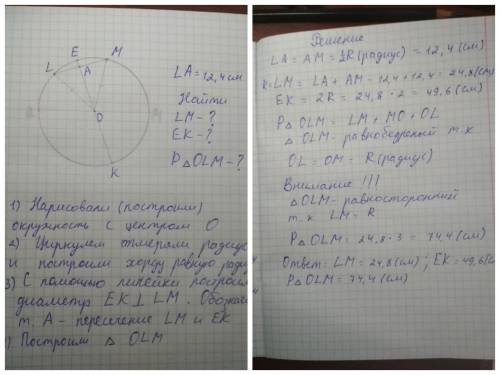 E
M
L
A
O
K
LA = 12,4 см
Найти
LM - ?
EK - ?
P△OLM - ?
1) Нарисовали (построили)
окружность с центром O
2) Циркулем отмеряли радиус
и построили хорду равную
3) С помощью линейки
диаметр EK ⊥ LM.
т. A - пересечение LM и EK
Построим △ OLM
Решение
LA = AM = (радиус) = 12,4 (см)
R = LM = LA + AM = 12,4 + 12,4 = 24,8 (см)
EK = 2R = 24,8 · 2 = 49,6 (см)
P△OLM = LM + MO + OL
△ OLM - равнобедреный т.к
OL = OM = R (радиус)
Внимание !!!
△OLM - равносторонний
т.к LM = R
P△OLM = 24,8 · 3 = 74,4 (см)
Ответ: LM = 24,8 (см); EK = 49,6
P△OLM = 74,4 (см)